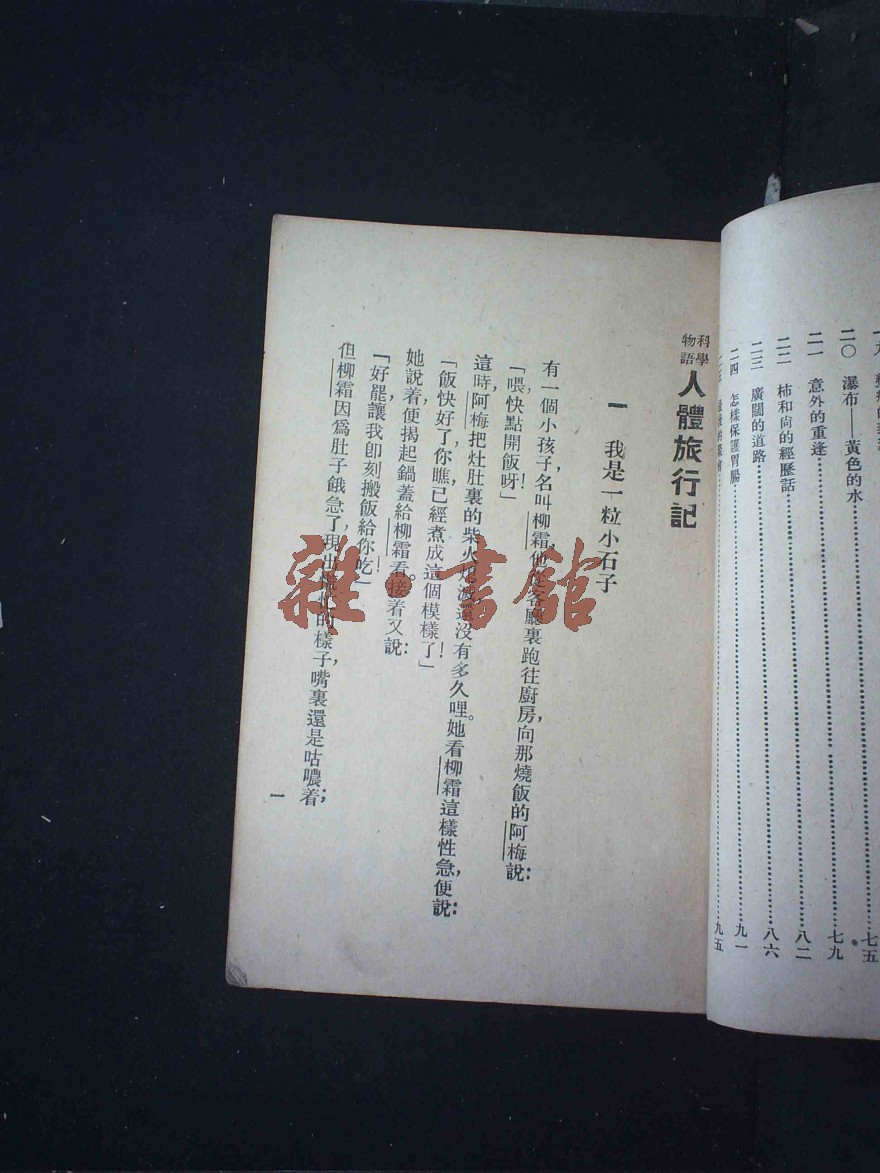 一九
七五
二〇 瀑布——黃色的水……七九
二一 意外的重逢……八二
二二 柿和尙的經歷話……八六
二三 廣闊的道路……九一
二四 怎樣保護胃腸……九五
科學物語
人體旅行記
一 我是一粒小石子
有一個小孩子，名叫柳霜，他從客廳裏跑往廚房，向那燒飯的阿梅說：
「喂，快點開飯呀！」
這時，阿梅把灶肚裏的柴火熄滅還沒有多久哩。她看柳霜這樣性急，便說：
「飯快好了，你瞧已經煮成這個模樣了！」
她說着，便揭起鍋蓋給柳霜看。接着又說：
「好罷讓我卽刻搬飯給你吃！」
但柳霜因爲肚子餓急了，現出的樣子，嘴裏還是咕噥着；
一
雜·書館